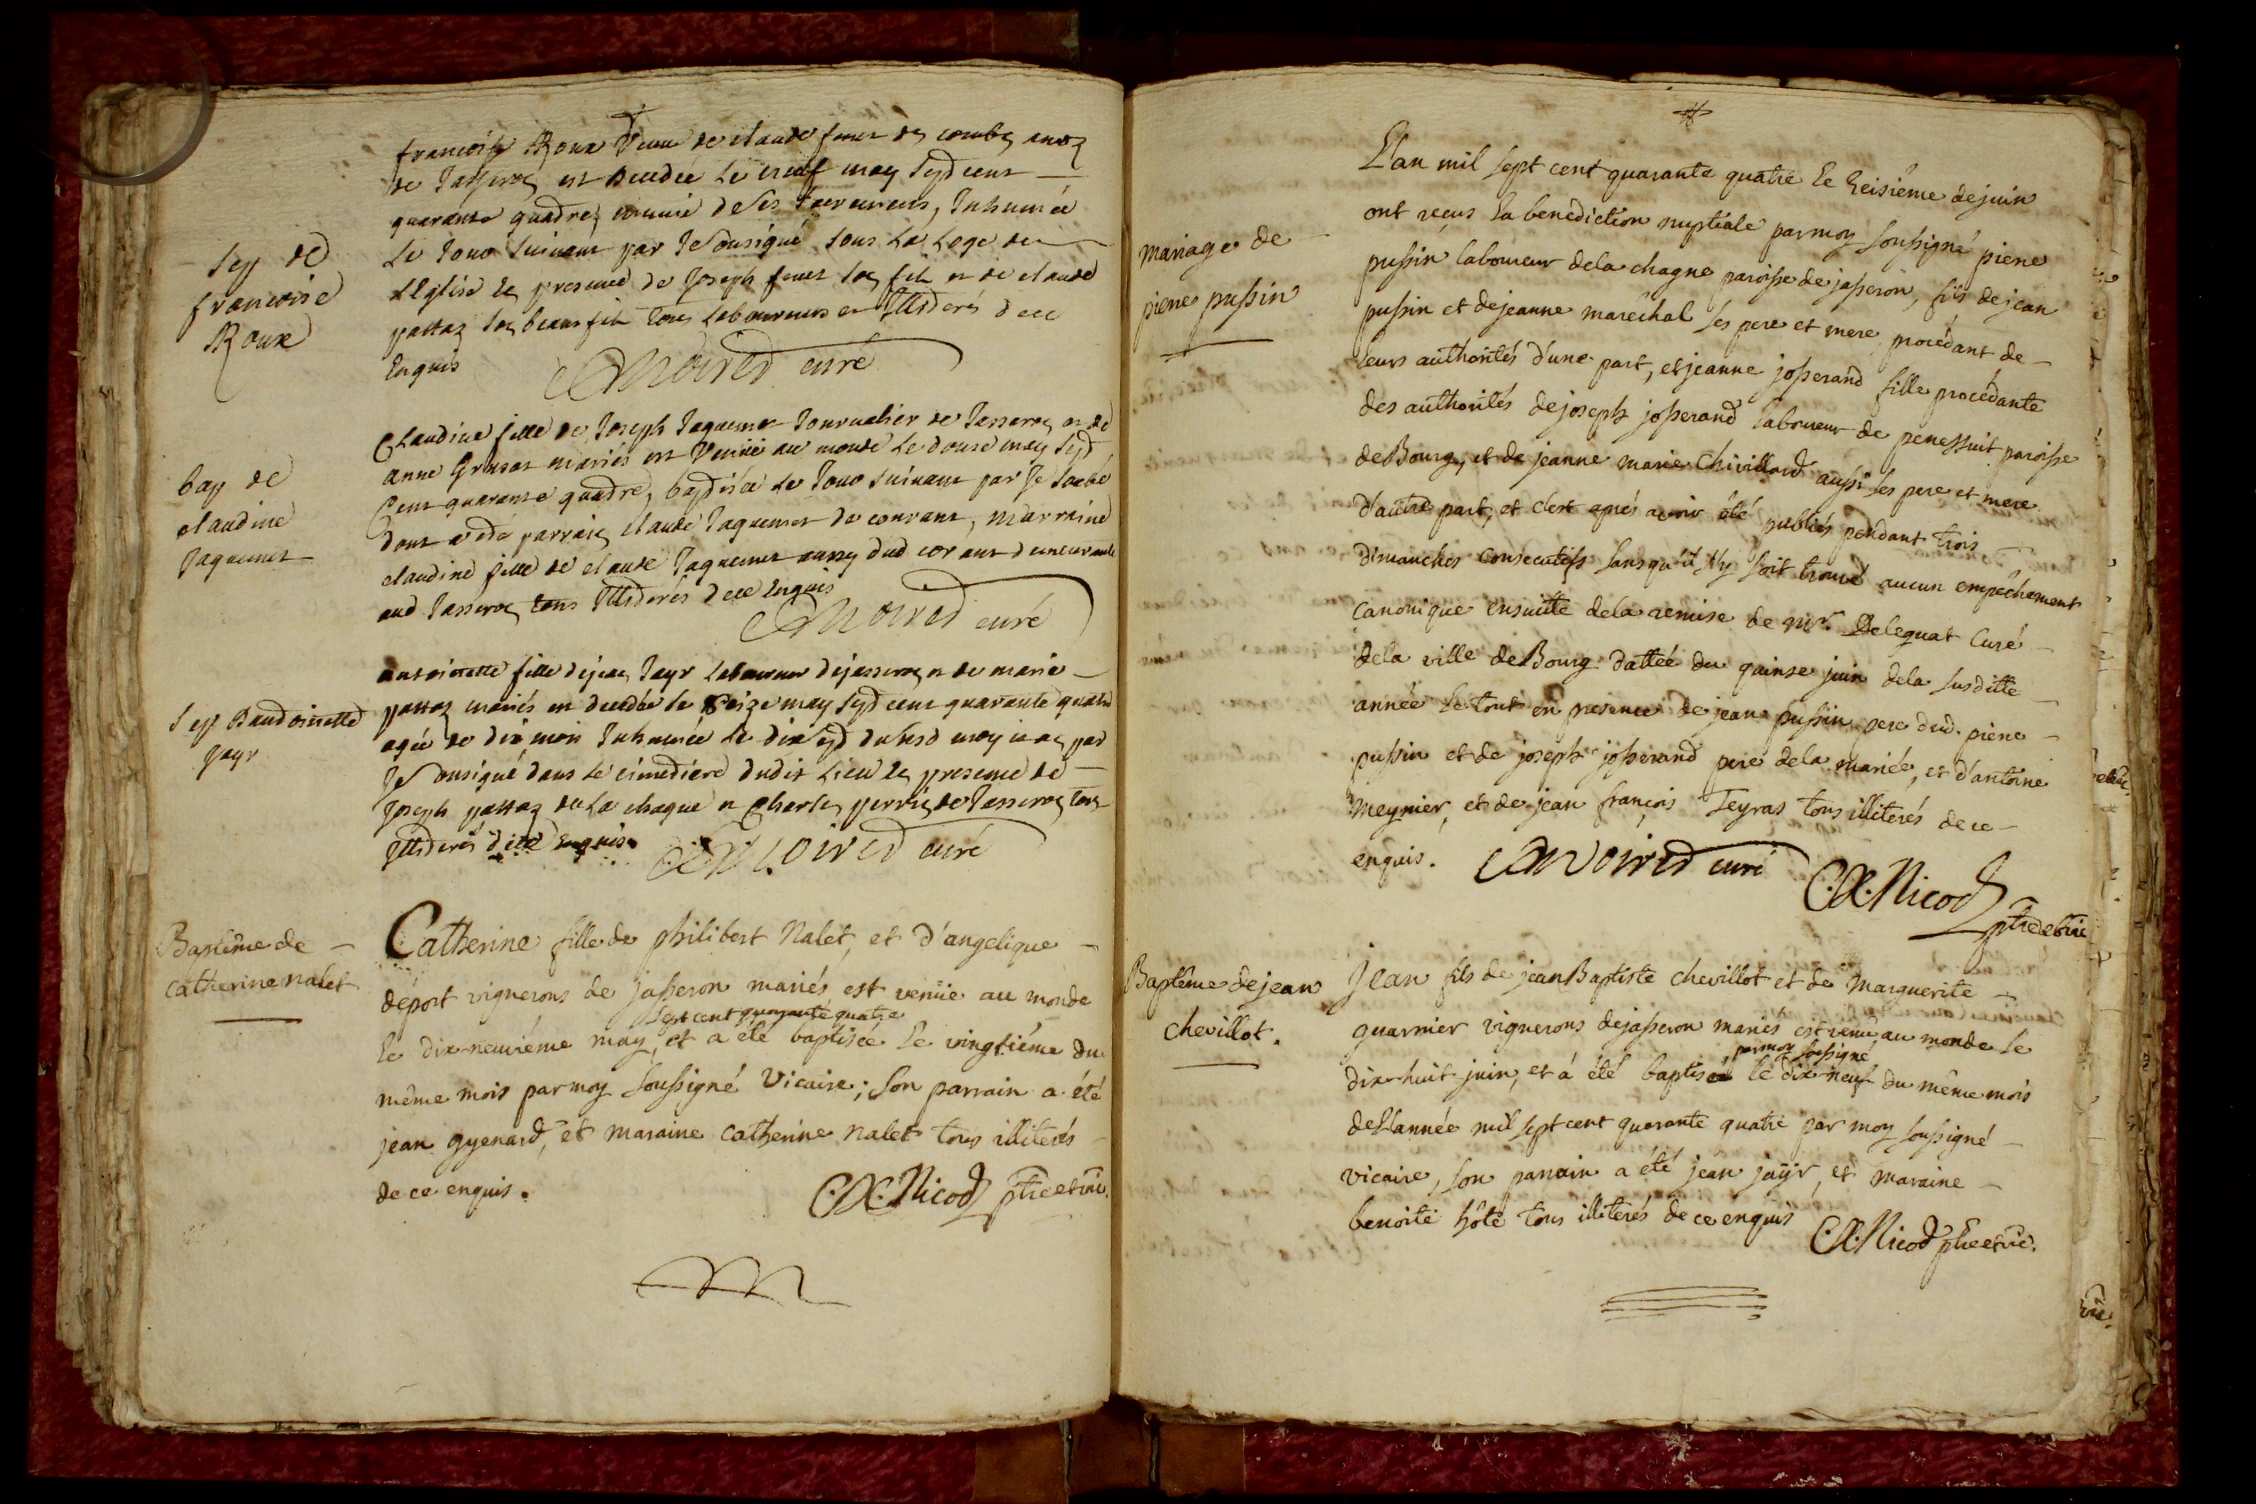 françoise Roux veuve de claude
de Jasseron est decedée le neuf may sept cent
quarante quatre, munie de ses sacremens, Inhumée
le Jour suivant par Je sousigné sous la loge de
L'Eglise en presence de Joseph son fils et de claude
pattaz son beaux fils tous laboureurs et Illiderés d ece
Enquis
noired curé
sep de
francoise
Roux
Claudine fille de Joseph Jaquemet Journalier de Jasseron et de
anne mariés est venüe au monde le douse may sept
Cent quarante quadre, baptisée le Jour suivant par Je
dont a été parrain claude Jaquemet de courant, marraine
claudine fille de claude Jaquemet aussy dud
aud Jasseron tous Illiderés d ece Enquis
noired curé
bap de
claudine
Jaquemet
antoinette fille dejean Jayr laboureur dejasseron et de marie
pattaz mariés est decedée le seize may sept cent quarante quatre
agée de dix mois Inhumée le dix sept dususd moy par
Je sousigné dans le cimediere dudit lieu en presence de
Joseph pattaz de la chague et Charles perrin de Jasseron tous
Illiderés d ece Enquis
noired curé
sep Dandoinette
Jayr
Catherine fille de philibert Nalet, et d'angelique
déport vignerons de jasseron mariés est venüe au monde
sept cent quarante quatre
le dix-neuviéme may, et a été baptisée le vingtiéme du
même mois par moy soussigné Vicaire; son parrain a été
jean gyenard, et maraine catherine nalet tous illiterés
de ce enquis.
C.X. Nicod ptre et vic.
Baptême de
catherine nalet
L'an mil sept cent quarante quatre le seisiéme dejuin
ont reçus la benediction nuptiale parmoy soussigné pierre
pussin laboureur dela chagne paroisse de jasseron, fils dejean
pussin et dejeanne maréchal ses pere et mere procédant de
leurs authorités d'une part, et jeanne josserand fille procédante
des authorités dejoseph josserand laboureur de penessuit paroisse
de Bourg, et de jeanne marie Chivillard aussi ses pere et mere
d'autre part, et c'est aprés avoir été publiés pendant trois
dimanches consecutifs sans qu'il s'y soit trouvé aucun empêchement
canonique ensuitte dela remise de mr. Deleguat Curé
dela ville de Bourg dattée du quinse juin dela susditte
année le tout en presence de jean pussin pere dud. pierre
pussin et de joseph josserand pere dela mariée, et d'antoine
meynier, et de jean françois Teyras tous illiterés de ce
enquis.
noired curé
C.X. Nicod
ptre et vic
mariage de
pierre pussin
Jean fils de jean Baptiste chevillot et de marguerite
guarnier vignerons dejasseron mariés est venu au monde le
par moy soussigné
dix-huit juin, et á été baptisé le dix-neuf du même mois
de L'année mil sept cent quarante quatre par moy soussigné
vicaire, son parrain a été jean jayr, et maraine
benoite hôte tous illiterés de ce enquis
C.X. Nicod ptre et vic.
Baptême dejean
chevillot.